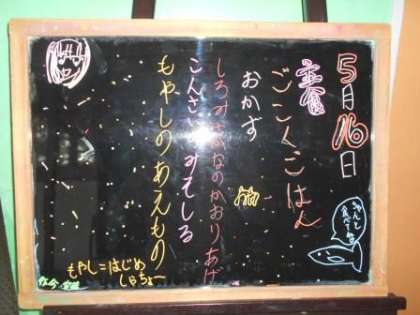 5月16日
主食
ごこくごはん
おかず
しろみざかなのかおりあげ
こんさいのみそしる
もやしのあえもの
もやし=はじめ
しゃちょー
ちゃんと
食べてね